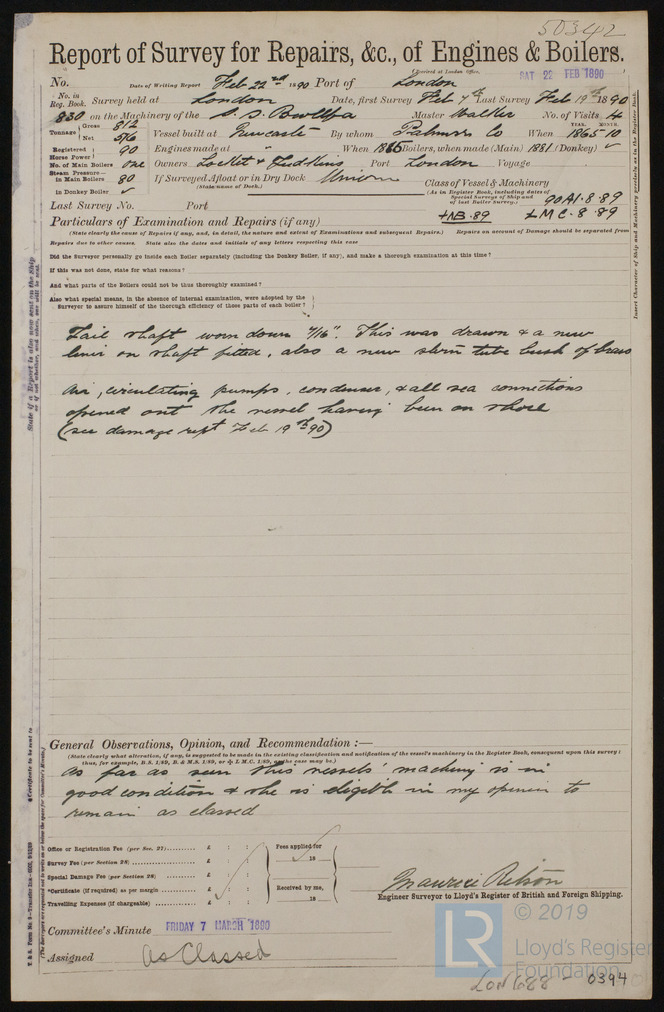 50342
Report of Survey for Repairs, &c., of Engines & Boilers.
(Received at London Office.
No. Date of Writing Report Feb 22nd 1890 Port of London SAT 22 FEB 1890
No. in Reg. Book. Survey held at London Date, first Survey Feb 7th Last Survey Feb 19th 1890
830 on the Machinery of the S. S. Master Walker No. of Visits 4
Tonnage Gross 812 Net 516 Vessel built at Newcastle By whom Palmers Co When 1865 10 YEAR. MONTH.
Registered Horse Power 90 Engines made at " When 1865 Boilers, when made (Main) 1881 (Donkey) ✓
No. of Main Boilers one Owners Port London Voyage
Steam Pressure— in Main Boilers 80 If Surveyed Afloat or in Dry Dock Union
(State name of Dock.)
in Donkey Boiler ✓
Class of Vessel & Machinery
(As in Register Book, including dates of Special Surveys of Ship and of last Boiler Survey.) 90A1.8.89
Last Survey No. Port +NB.89 LMC.8.89
Particulars of Examination and Repairs (if any)
(State clearly the cause of Repairs if any, and, in detail, the nature and extent of Examinations and subsequent Repairs.) Repairs on account of Damage should be separated from
Repairs due to other causes. State also the dates and initials of any letters respecting this case
Did the Surveyor personally go inside each Boiler separately (including the Donkey Boiler, if any), and make a thorough examination at this time?
If this was not done, state for what reasons?
And what parts of the Boilers could not be thus thoroughly examined?
Also what special means, in the absence of internal examination, were adopted by the
Surveyor to assure himself of the thorough efficiency of those parts of each boiler?
Tail shaft worn down 7/16". This was drawn & a new
liner on shaft fitted, also a new stern tube bush of brass
Air, circulating pumps, condenser, & all sea connections
opened out the vessel having been on shore
(see damage rept Feb 19th 90)
General Observations, Opinion, and Recommendation :—
(State clearly what alteration, if any, is suggested to be made in the existing classification and notification of the vessel's machinery in the Register Book, consequent upon this survey:
thus, for example, B.S. 1/89, B. & M.S. 1/89, or L.M.C. 1/89, as the case may be.)
As far as seen this vessels' machiny is in
good condition & she is eligible in my opinion to
remain as classed
Office or Registration Fee (per Sec. 27) £ : : Fees applied for
Survey Fee (per Section 28) £ : : 18
Special Damage Fee (per Section 28) £ : :
*Certificate (if required) as per margin £ : : Received by me,
Travelling Expenses (if chargeable) £ : : 18
Maurice
Engineer Surveyor to Lloyd's Register of British and Foreign Shipping.
Committee's Minute FRIDAY 7 MARCH 1890
Assigned As Classed
LR © 2019
Lloyd's Register
Foundation
LON 688 - 0394
State if a Report is also now sent on the Ship
or if not whether, and when, one will be sent.
*Certificate to be sent to
Insert Character of Ship and Machinery precisely as in the Register Book.